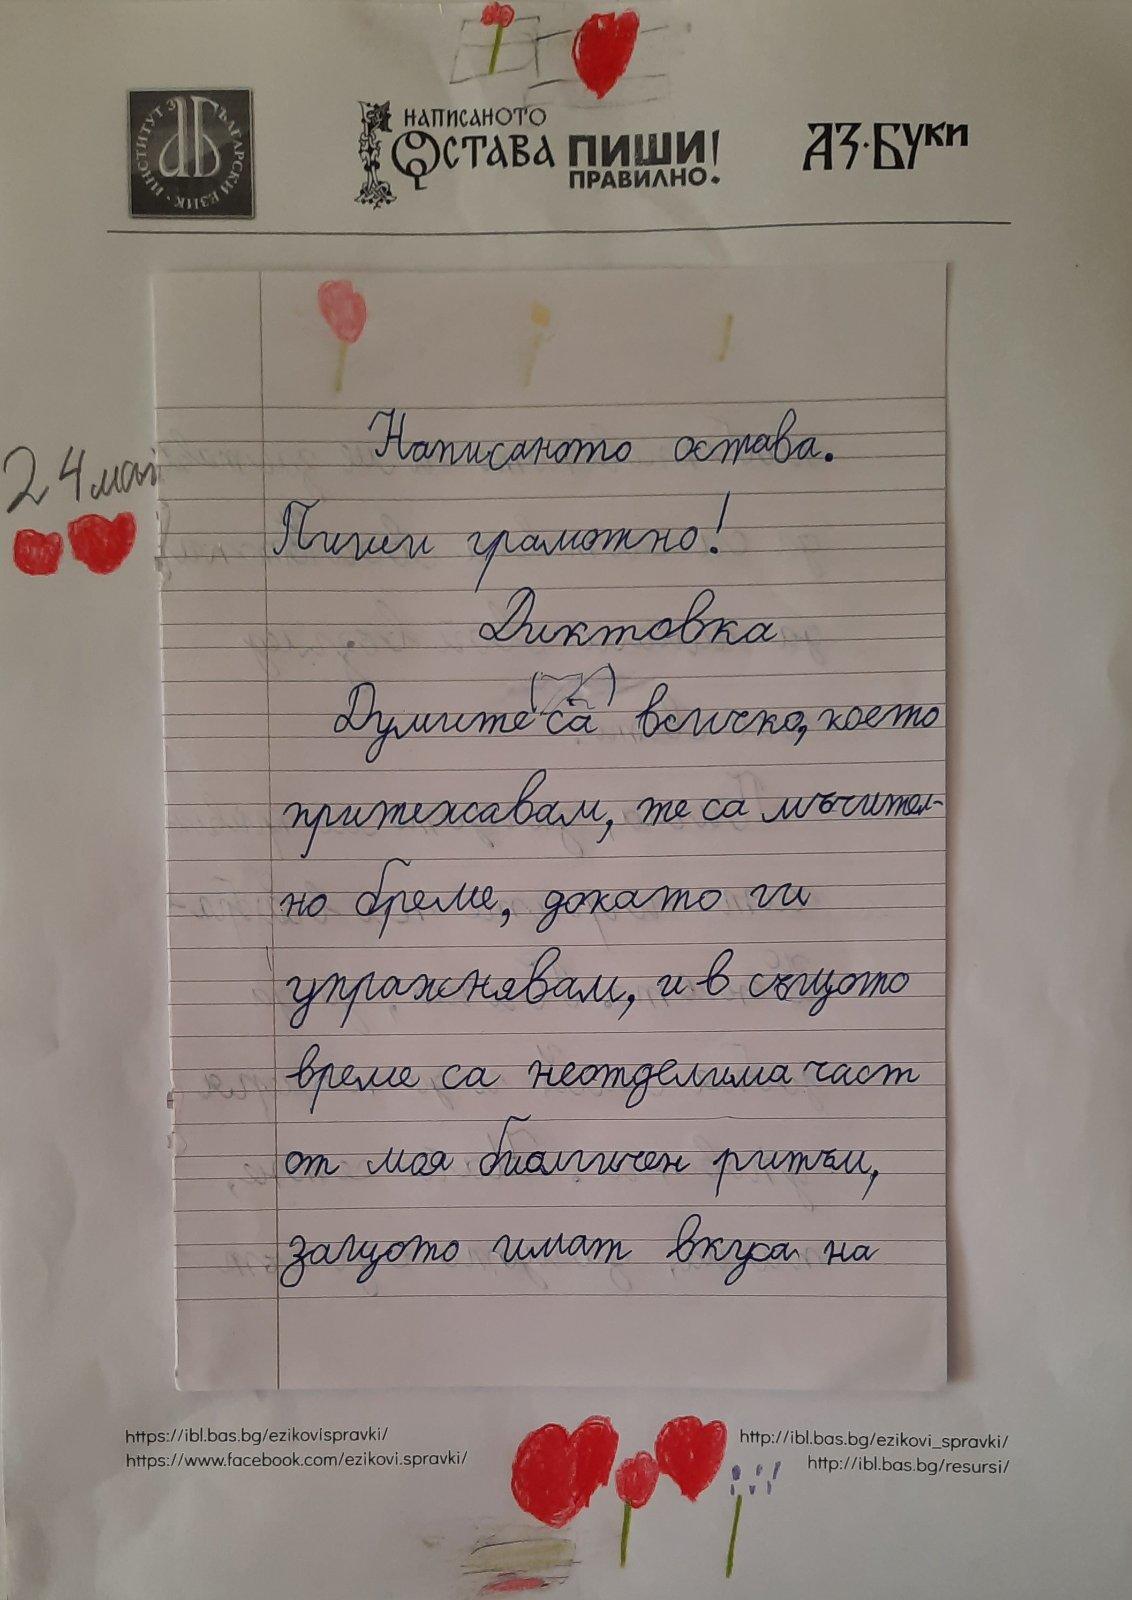 ИНСТИТУТ ЗА БЪЛГАРСКИ ЕЗИК
НАПИСАНОТО
ОСТАВА ПИШИ!
ПРАВИЛНО.
АЗ·БУКИ
24 май
Написаното остава.
Пиши грамотно!
Диктовка
Думите са всичко, което
притежавам, те са мъчител-
но бреме, докато ги
упражнявам, и в същото
време са неотделима част
от моя биологичен ритъм,
защото имат вкуса на
https://ibl.bas.bg/ezikovispravki/
https://www.facebook.com/ezikovi.spravki/
http://ibl.bas.bg/ezikovi_spravki/
http://ibl.bas.bg/resursi/